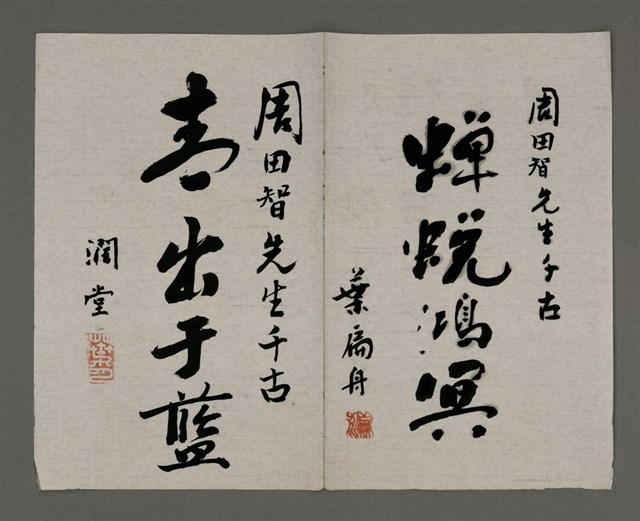 周田智先生千古
蟬蛻鴻冥
葉扁舟
周田智先生千古
青出于藍
潤堂